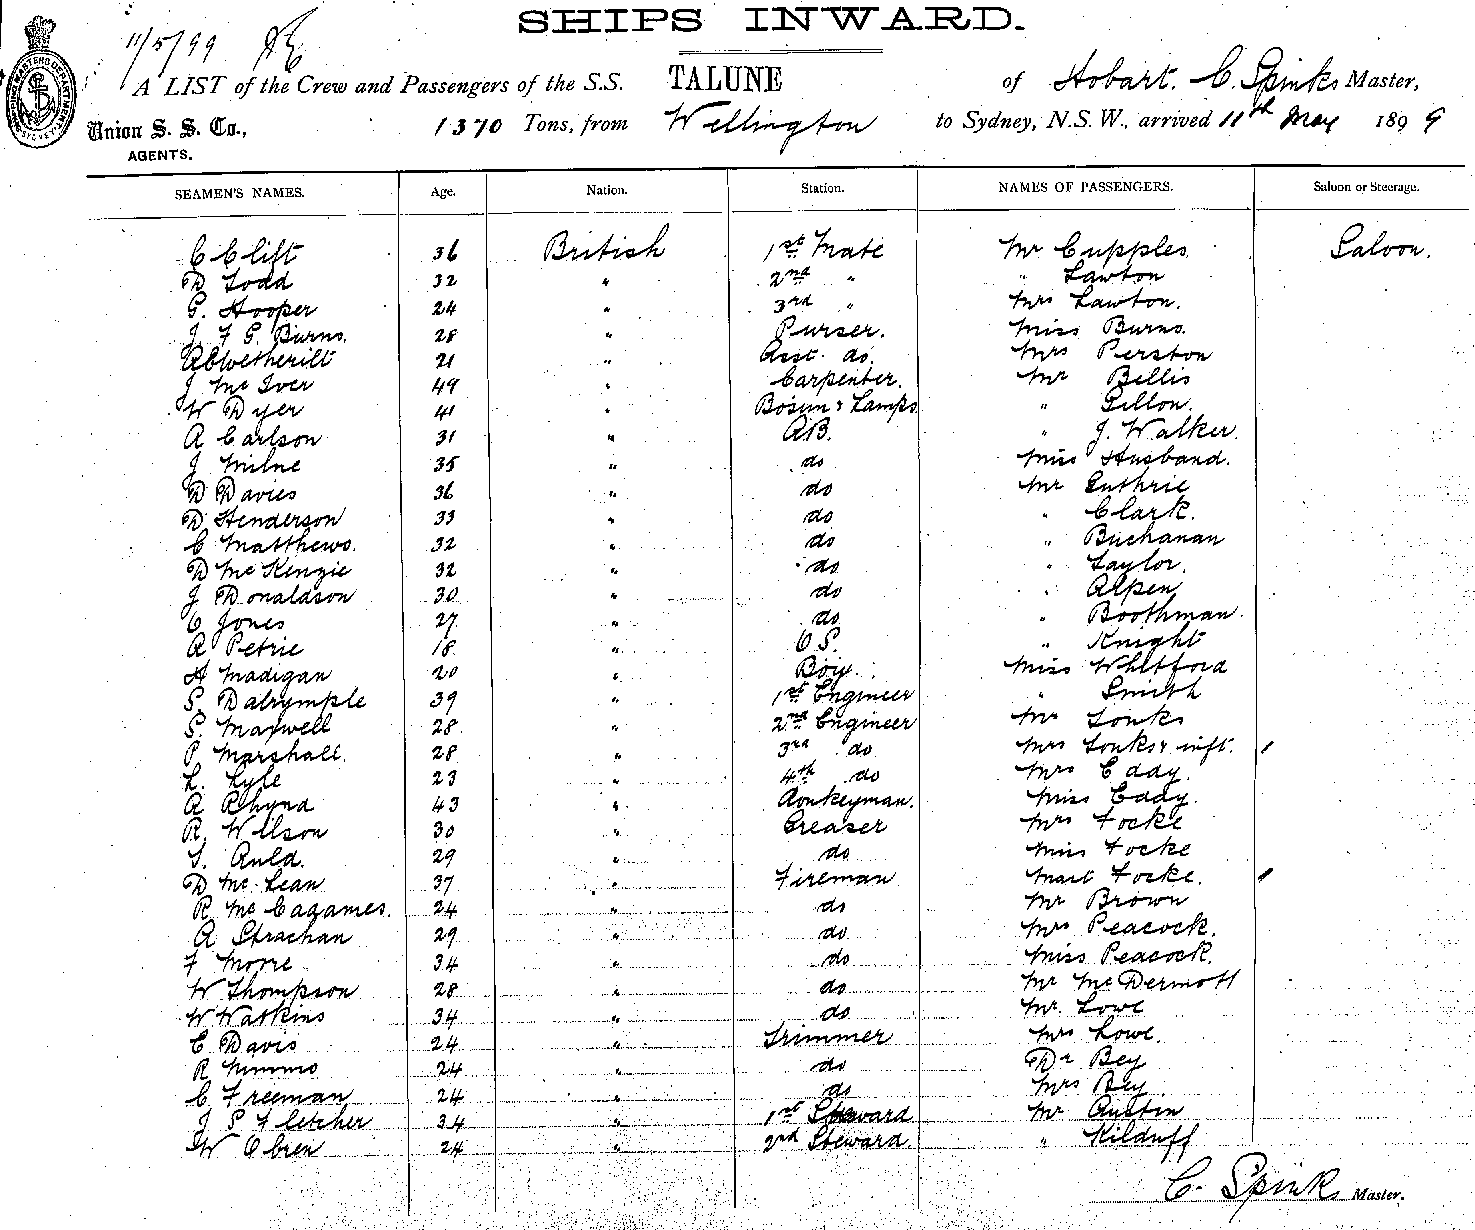 SHIPS INWARD.
11/5/99
A LIST of the Crew and Passengers of the S.S. TALUNE of Hobart. C. Spinks Master,
Union S. S. Co., 1370 Tons, from Wellington to Sydney, N.S.W., arrived 11th May 1899
AGENTS.
SEAMEN'S NAMES. Age. Nation. Station. NAMES OF PASSENGERS. Saloon or Steerage.
C Clift 36 British 1st Mate Mr Cupples Saloon.
D Todd 32 " 2nd " " Lawton
G. Hooper 24 " 3rd " Mrs Lawton.
J. F G. Burns. 28 " Purser. Miss Burns.
Wetherilt 21 " Asst. do. Mrs Perston
J Mc Iver 49 " Carpenter. Mr Bellis
W Dyer 41 " Bosun & Lamps " Dillon.
A Carlson 31 " A.B. " J. Walker.
J Milne 35 " do Miss Husband.
D Davies 36 " do Mr Guthrie
D Henderson 33 " do " Clark.
C Matthews. 32 " do " Buchanan
D McKenzie 32 " do " Taylor.
J Donaldson 30 " do " Alpen
C Jones 27 " do " Boothman.
A Petrie 18 " O.S. " Knight
H Madigan 20 " Boy. Miss Whitford
S. Dalrymple 39 " 1st Engineer " Smith
S. Maxwell 28 " 2nd Engineer Mr Tonks
P Marshall. 28 " 3rd do Mrs Tonks & inft.
L. Lyle 23 " 4th do Mrs Eddy.
A Rhynd 43 " Donkeyman. Miss Eddy.
R. Wilson 30 " Greaser Mrs Focke
T. Auld. 29 " do Miss Focke
D McLean 37 " Fireman Mast Focke.
R 24 " do Mr Brown
A Strachan 29 " do Mrs Peacock.
F 34 " do Miss Peacock.
W Thompson 28 " do Mr McDermott
W Watkins 34 " do Mr. Lowe
E Davis 24 " Trimmer Mrs Lowe.
R Nimmo 24 " do Dr Bey
C Freeman 24 " do Mrs Bey
J S Fletcher 34 " 1st Steward Mr Austin
W Obren 24 " 2nd Steward. " Kilduff
C. Spinks Master.